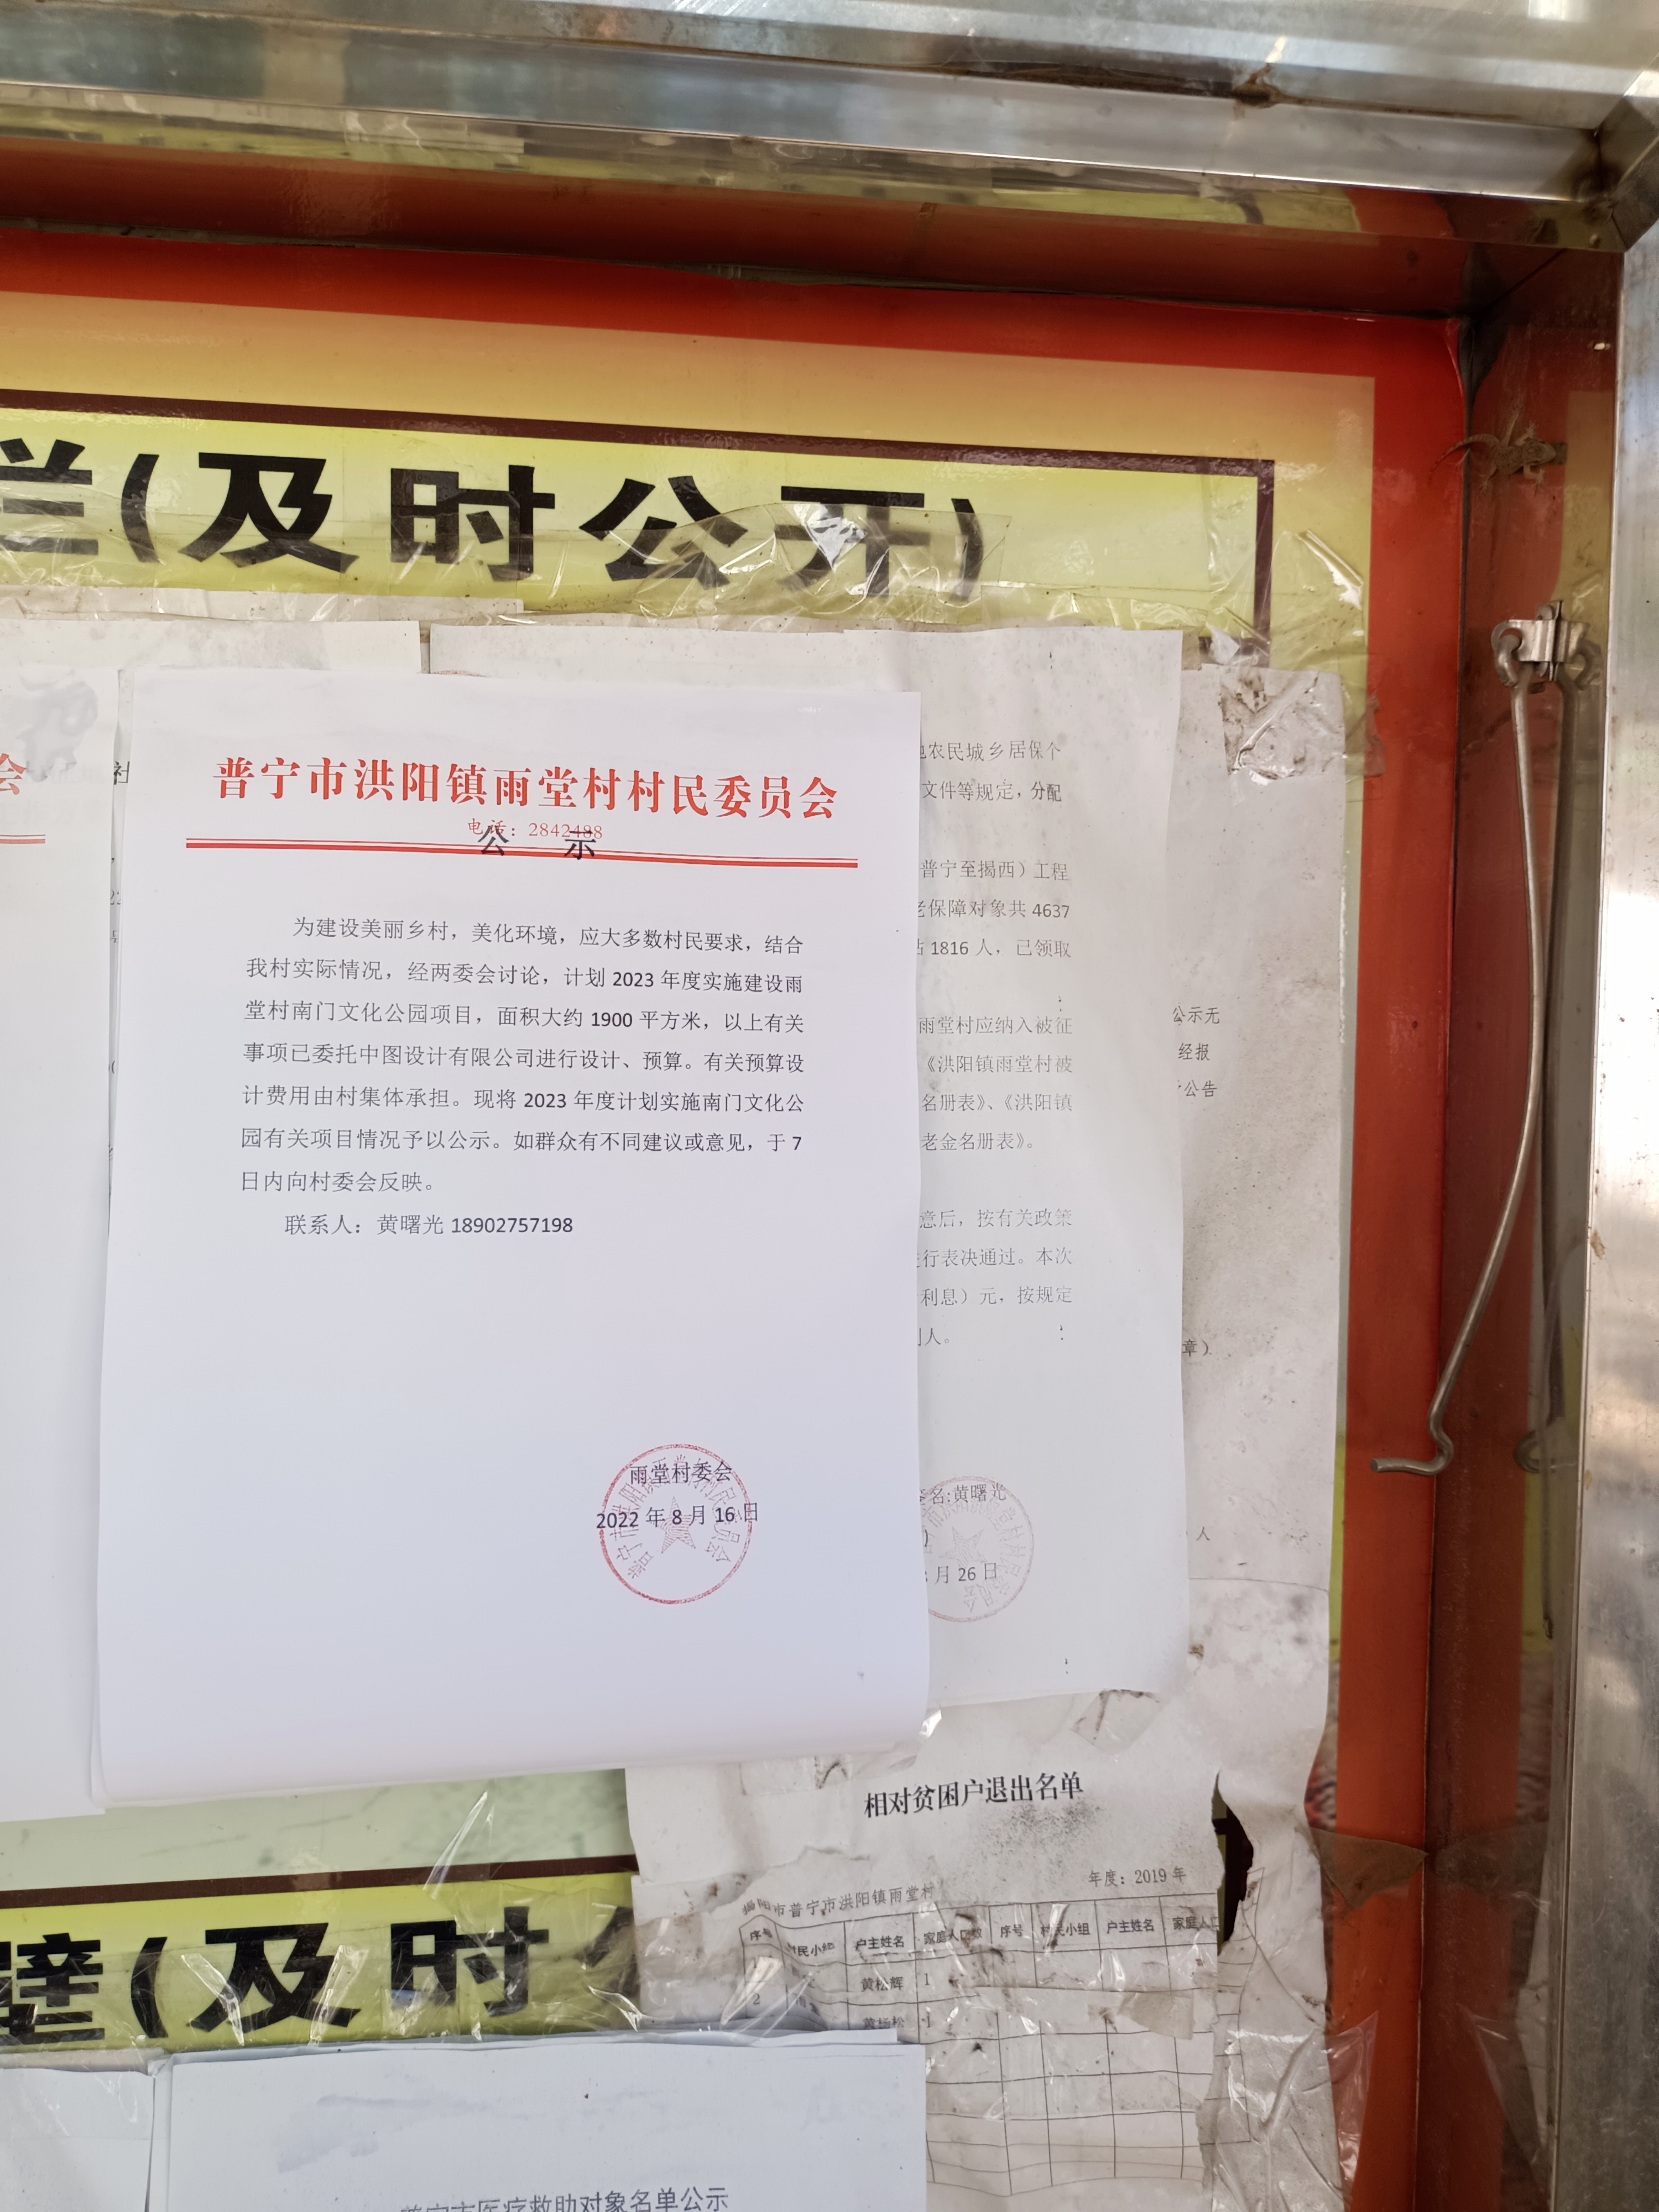 栏(及时公开)
会
社
普宁市洪阳镇雨堂村村民委员会
电话：2842488
公 示
为建设美丽乡村，美化环境，应大多数村民要求，结合
我村实际情况，经两委会讨论，计划 2023 年度实施建设雨
堂村南门文化公园项目，面积大约 1900 平方米，以上有关
事项已委托中图设计有限公司进行设计、预算。有关预算设
计费用由村集体承担。现将 2023 年度计划实施南门文化公
园有关项目情况予以公示。如群众有不同建议或意见，于 7
日内向村委会反映。
联系人：黄曙光 18902757198
雨堂村委会
2022 年 8 月 16 日
普宁市洪阳镇雨堂村村民委员会
地农民城乡居保个
文件等规定，分配
普宁至揭西）工程
老保障对象共 4637
1816 人，已领取
雨堂村应纳入被征
《洪阳镇雨堂村被
名册表》、《洪阳镇
老金名册表》。
意后，按有关政策
进行表决通过。本次
利息）元，按规定
人。
签名:黄曙光
月 26 日
公示无
经报
公告
章）
人
相对贫困户退出名单
年度：2019 年
揭阳市普宁市洪阳镇雨堂村
序号 村民小组 户主姓名 家庭人口数 序号 村民小组 户主姓名 家庭人口
1 黄松辉 1
2 黄杨松 1
壁(及时
普宁市医疗救助对象名单公示